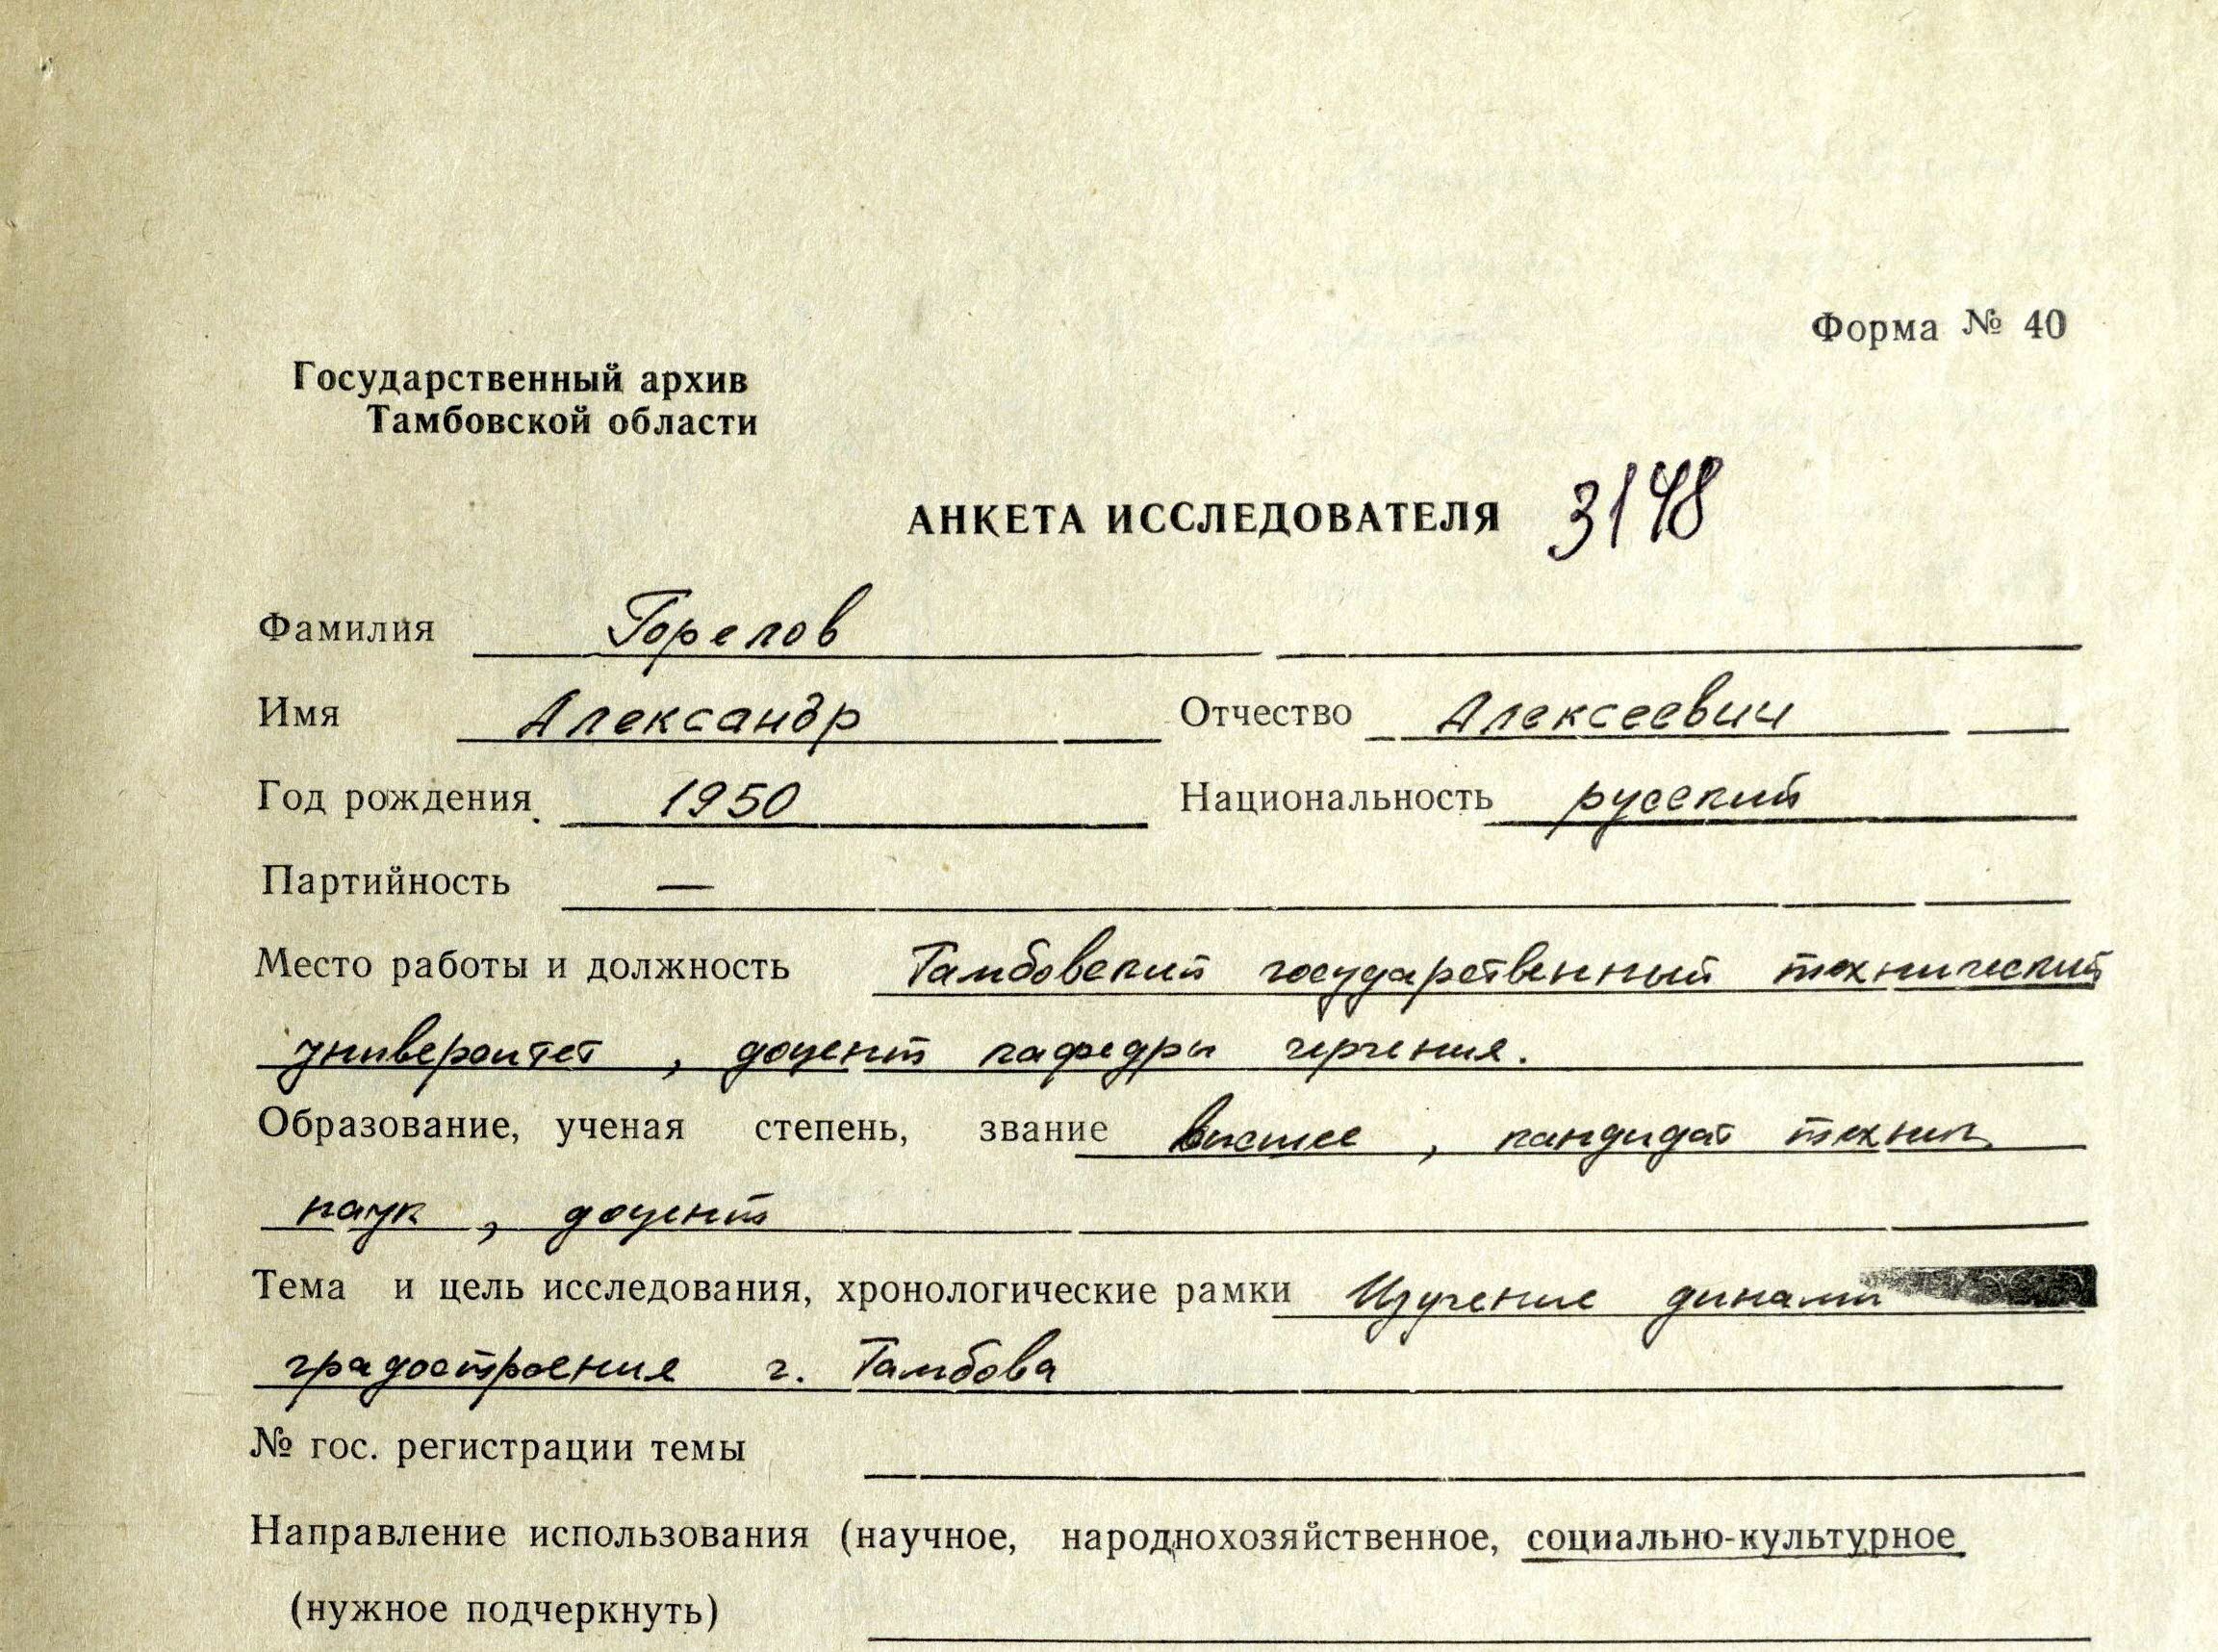 Форма № 40
Государственный архив
Тамбовской области
АНКЕТА ИССЛЕДОВАТЕЛЯ 3148
Фамилия Горелов
Имя Александр Отчество Алексеевич
Год рождения 1950 Национальность русский
Партийность —
Место работы и должность Тамбовский государственный технический
университет, доцент кафедры черчения.
Образование, ученая степень, звание высшее, кандидат технич.
наук, доцент
Тема и цель исследования, хронологические рамки Изучение
градостроения г. Тамбова
№ гос. регистрации темы
Направление использования (научное, народнохозяйственное, социально-культурное
(нужное подчеркнуть)